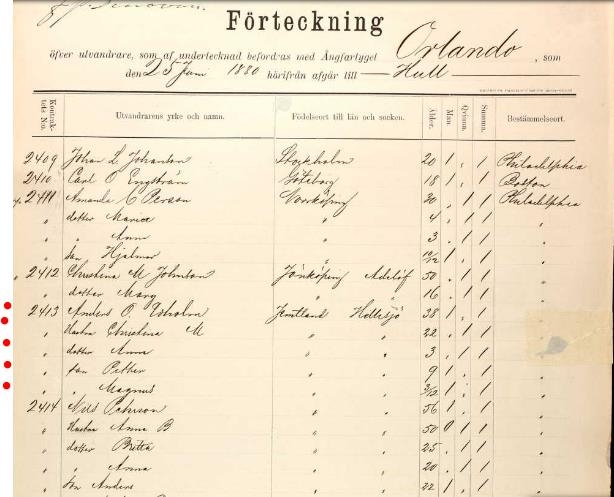 Förteckning
öfver utvandrare, som af undertecknad befordras med Ångfartyget Orlando, som
den 25 Juni 1880 härifrån afgår till Hull
Kontrakts No. Utvandrarens yrke och namn. Födelseort till län och socken. Ålder. Man. Qvinna. Summa. Bestämmelseort.
2409 Johan L Johanson Stockholm 20 1 , 1 Philadelphia
2410 Carl O Engström Göteborg 18 1 , 1 Boston
2411 Amanda C Person Norrköping 30 , 1 1 Philadelphia
" dotter Maria " 4 , 1 1 "
" " Anna " 3 , 1 1 "
" son Hjalmar " /12 1 , 1 "
" 2412 Christina M Johnson Jönköping Adelöf 50 , 1 1 "
" dotter Mary " " 16 , 1 1 "
2413 Anders O. Jemtland Hellesjö 38 1 , 1 "
" Hustru Christina M " " 22 , 1 1 "
" dotter Anna " " 3 , 1 1 "
" son Petter " " 9 1 , 1 "
" " Magnus " " /12 1 , 1 "
2414 Nils Pehrson " " 56 1 , 1 "
" Hustru Anna B " " 50 1 "
" dotter Britta " " 25 , 1 1 "
" " Anna " " 20 , 1 1 "
" son Anders " " 22 1 , 1 "